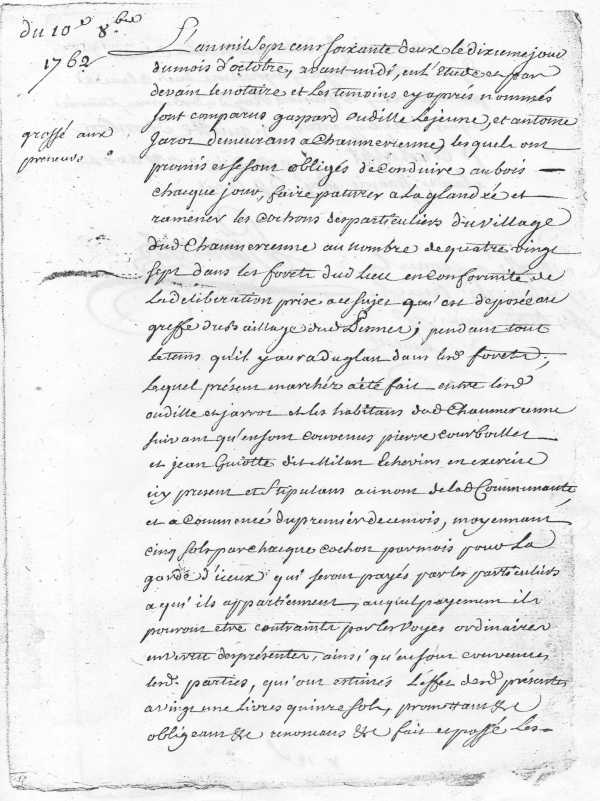 du 10e 8bre
1762
grossé aux
preneurs
L'an mil sept cent soixante deux le dixieme jour
du mois d'octobre, avant midi, en l'Etude et par
devant le notaire et les temoins cy aprés nommés
sont comparus gaspard oudille Lejeune, et antoine
Jarot demeurans a Chaumerienne, lesquels ont
promis et se sont obligés de Conduire au bois
chaque jour, faire paturer a La glandée et
ramener les cochons des particuliers du village
dud Chaumerienne au nombre de quatre vingt
sept dans les forets dud lieu en conformité de
La deliberation prise a ce sujet qu'est deposée au
greffe du Baillage dud Pesmes; pendant tout
le tems qu'il y aura du glan dans lesd forets;
Lequel présent marchez a été fait entre lesd
oudille et jarrot et les habitans dud Chaumerienne
suivant qu'en sont couvenus pierre courboillet
et jean Guiotte dit Milan Echevins en exercice
icy present et Stipulans au nom de lad Communauté,
et a Commencé du premier de ce mois, moyennant
cinq sols par chaque cochon par mois pour La
garde d'iceux qui seront payés par les particuliers
a qui ils appartiennent, auquel payement ils
pouront etre contraints par les voyes ordinaires
en vertu des présentes, ainsi qu'en sont couvenues
lesd. parties, qui ont estimés L'effet desd présentes
a vingt une livres quinze sols, promettant &c
obligeant &c renoncans &c fait et passé Les